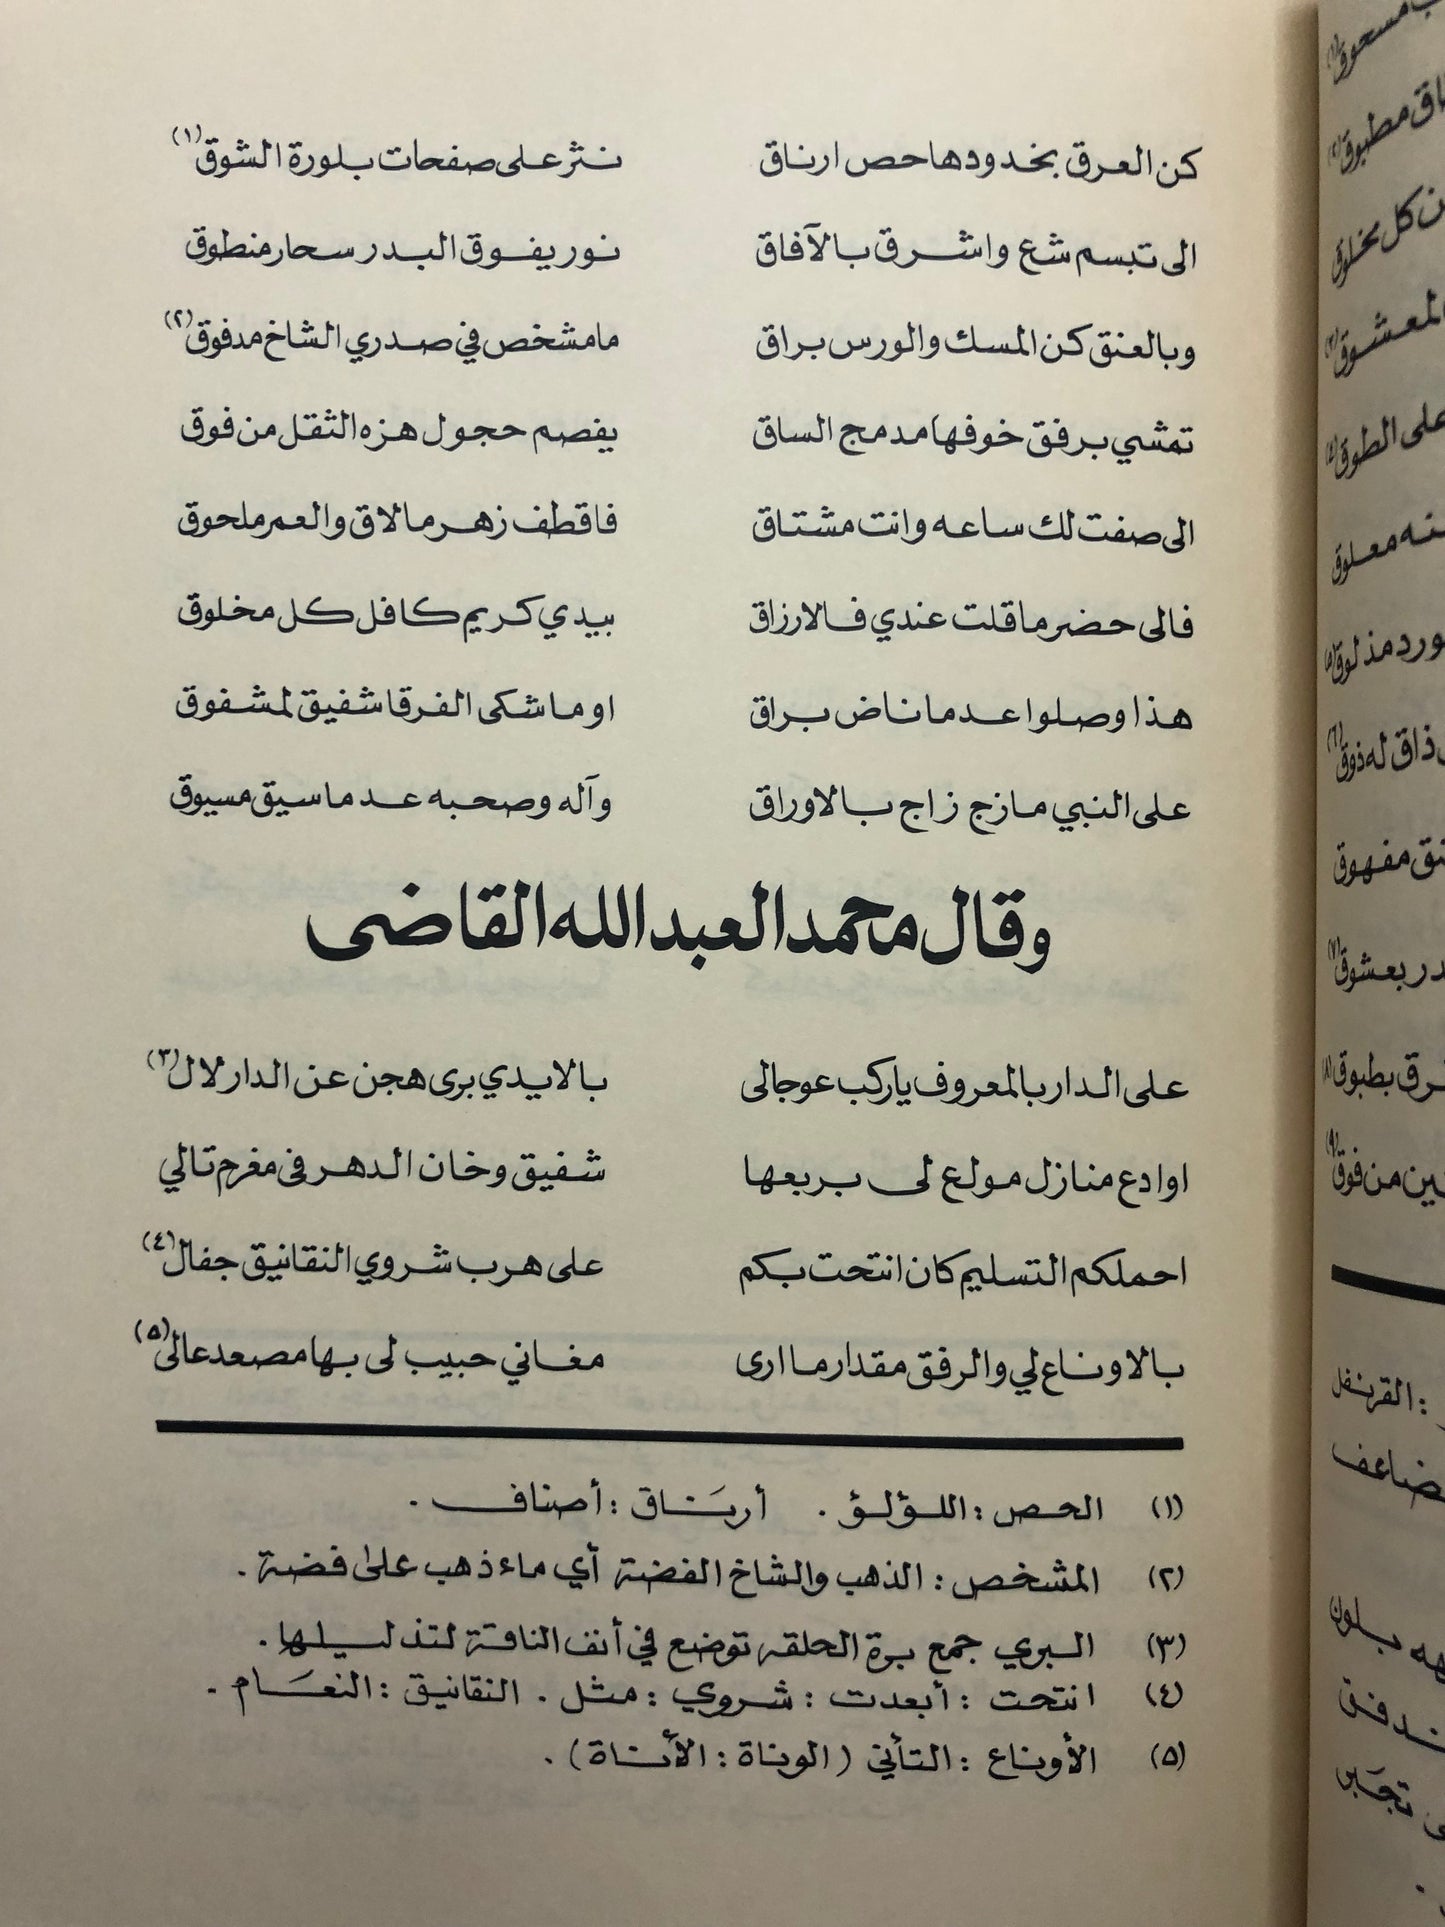 كن العرق بخدودها حص ارناق نثر على صفحات بلورة الشوق (١)
الى تبسم شع واشرق بالآفاق نور يفوق البدر سحار منطوق
وبالعنق كن المسك والورس براق ما مشخص في صدري الشاخ مدفوق (٢)
تمشي برفق خوفها مدمج الساق يفصم حجول هزه الثقل من فوق
الى صفت لك ساعه وانت مشتاق فاقطف زهر مالاق والعمر ملحوق
فالى حضر ماقلت عندي فالارزاق بيدي كريم كافل كل مخلوق
هذا وصلوا عد ماناض براق او ماشكى الفرقا شفيق لمشفوق
على النبي مازج زاج بالاوراق وآله وصحبه عد ماسيق مسيوق
وقال محمد العبدالله القاضى
على الدار بالمعروف ياركب عوجالى بالايدي برى هجن عن الدار لال (٣)
اوادع منازل مولع لى بربعها شفيق وخان الدهر فى مغرم تالي
احملكم التسليم كان انتحت بكم على هرب شروي النقانيق جفال (٤)
بالاوناع لي والرفق مقدار ما ارى مغاني حبيب لى بها مصعد عالى (٥)
(١) الحص : اللؤلؤ . أرنَاق : أصناف .
(٢) المشخص : الذهب والشاخ الفضة أي ماء ذهب على فضة .
(٣) البري جمع برة الحلقه توضع في أنف الناقة لتذليلها .
(٤) انتحت : أبعدت : شروي : مثل . النقانيق : النعَام .
(٥) الأوناع : التأني ( الوناة : الأناة ) .
مسحوق (١)
اق مطبوق (٢)
ن كل مخلوق
المعشوق (٣)
على الطوق (٤)
نه معلوق
ورد مذلوق (٥)
ذاق له ذوق (٦)
نق مفهوق
در بعشوق (٧)
رق بطبوق (٨)
ين من فوق (٩)
: القرنفل
ضاعف